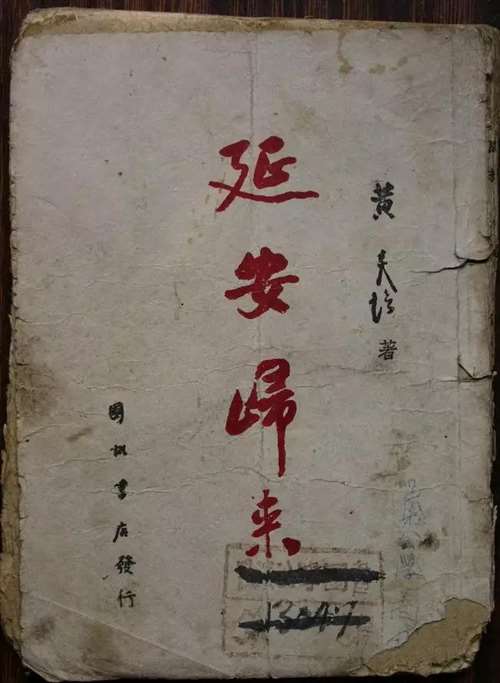 黄炎培著
延安歸来
國訊書店發行